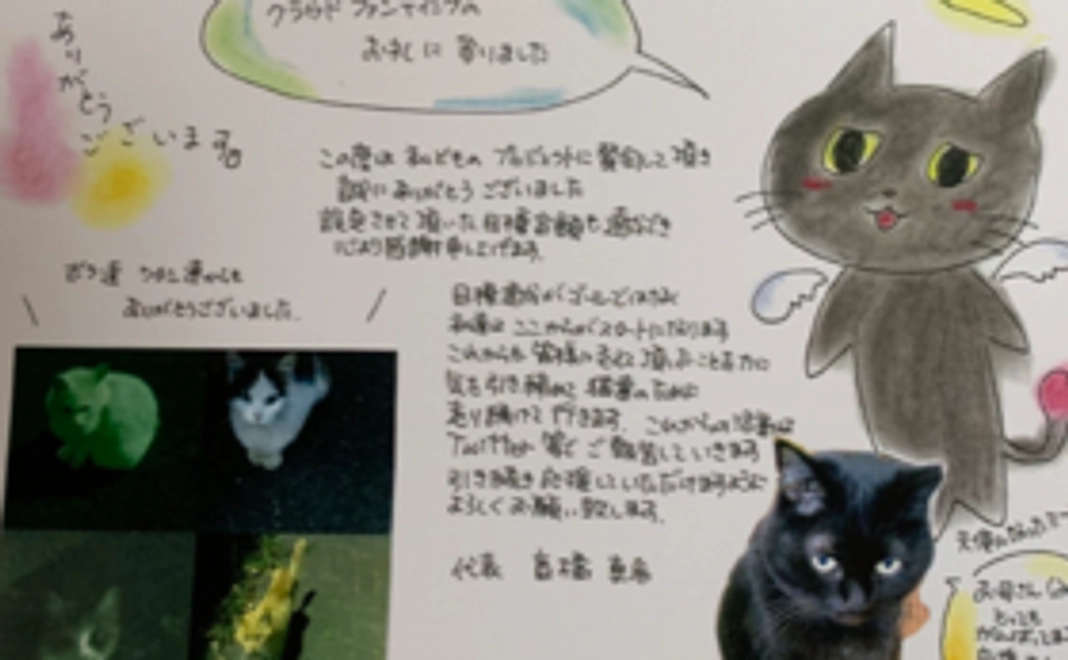 ありがとう
ございます
クラウドファンディングの
お礼に参りました
この度は私どもの プロジェクトに賛同して頂き
誠にありがとうございました
設定させて頂いた目標金額を達成でき
心より感謝申し上げます。
ボク達 ワタシ達からも
ありがとうございました。
目標達成がゴールではなく
私達は ここからがスタートになります
これからも皆様に支えて頂
気を引き締め 猫達のために
走り続けて行きます。これからの活動は
Twitter 等で ご報告していきます
引き続き応援していただけますように
よろしくお願い致します。
代表 高橋
天使になった
お母さん
とっても
がんばってる